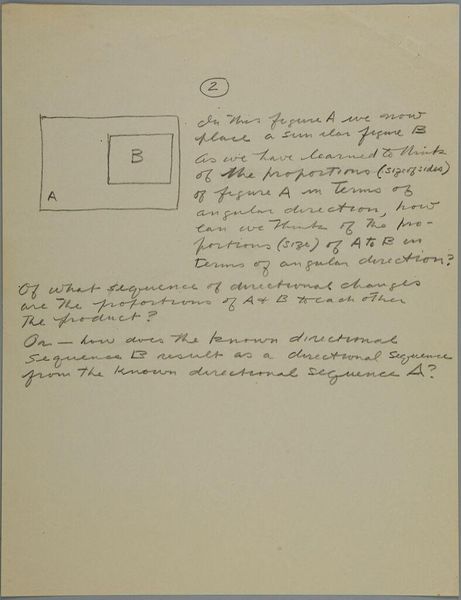 2
In this figure A we now
place a similar figure B
As we have learned to think
of the proportions (size of sides)
of figure A in terms of
angular direction, how
can we think of the pro-
portions (size) of A to B in
terms of angular direction?
B
A
Of what sequence of directional changes
are the proportions of A & B to each other
the product?
Or — how does the known directional
sequence B result as a directional sequence
from the known directional sequence A?